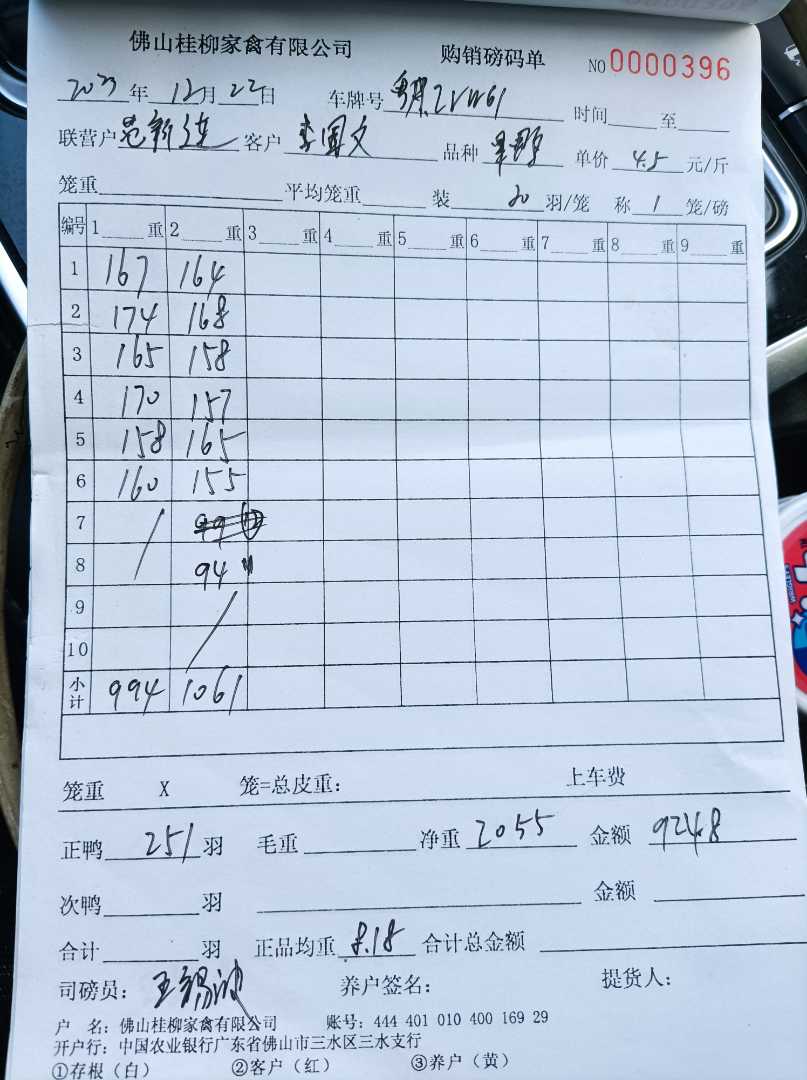 佛山桂柳家禽有限公司 购销磅码单 NO 0000396
2023年12月22日 车牌号 时间 至
联营户 客户 李国文 品种 单价 4.5 元/斤
笼重 平均笼重 装 20 羽/笼 称 1 笼/磅
编号 1 重 2 重 3 重 4 重 5 重 6 重 7 重 8 重 9 重
1 167 164
2 174 168
3 165 158
4 170 157
5 158 165
6 160 155
7
8 94
9
10
小计 994 1061
笼重 X 笼=总皮重: 上车费
正鸭 251 羽 毛重 净重 2055 金额 9248
次鸭 羽 金额
合计 羽 正品均重 8.18 合计总金额
司磅员: 养户签名: 提货人:
户 名: 佛山桂柳家禽有限公司 账号: 444 401 010 400 169 29
开户行: 中国农业银行广东省佛山市三水区三水支行
①存根(白) ②客户(红) ③养户(黄)